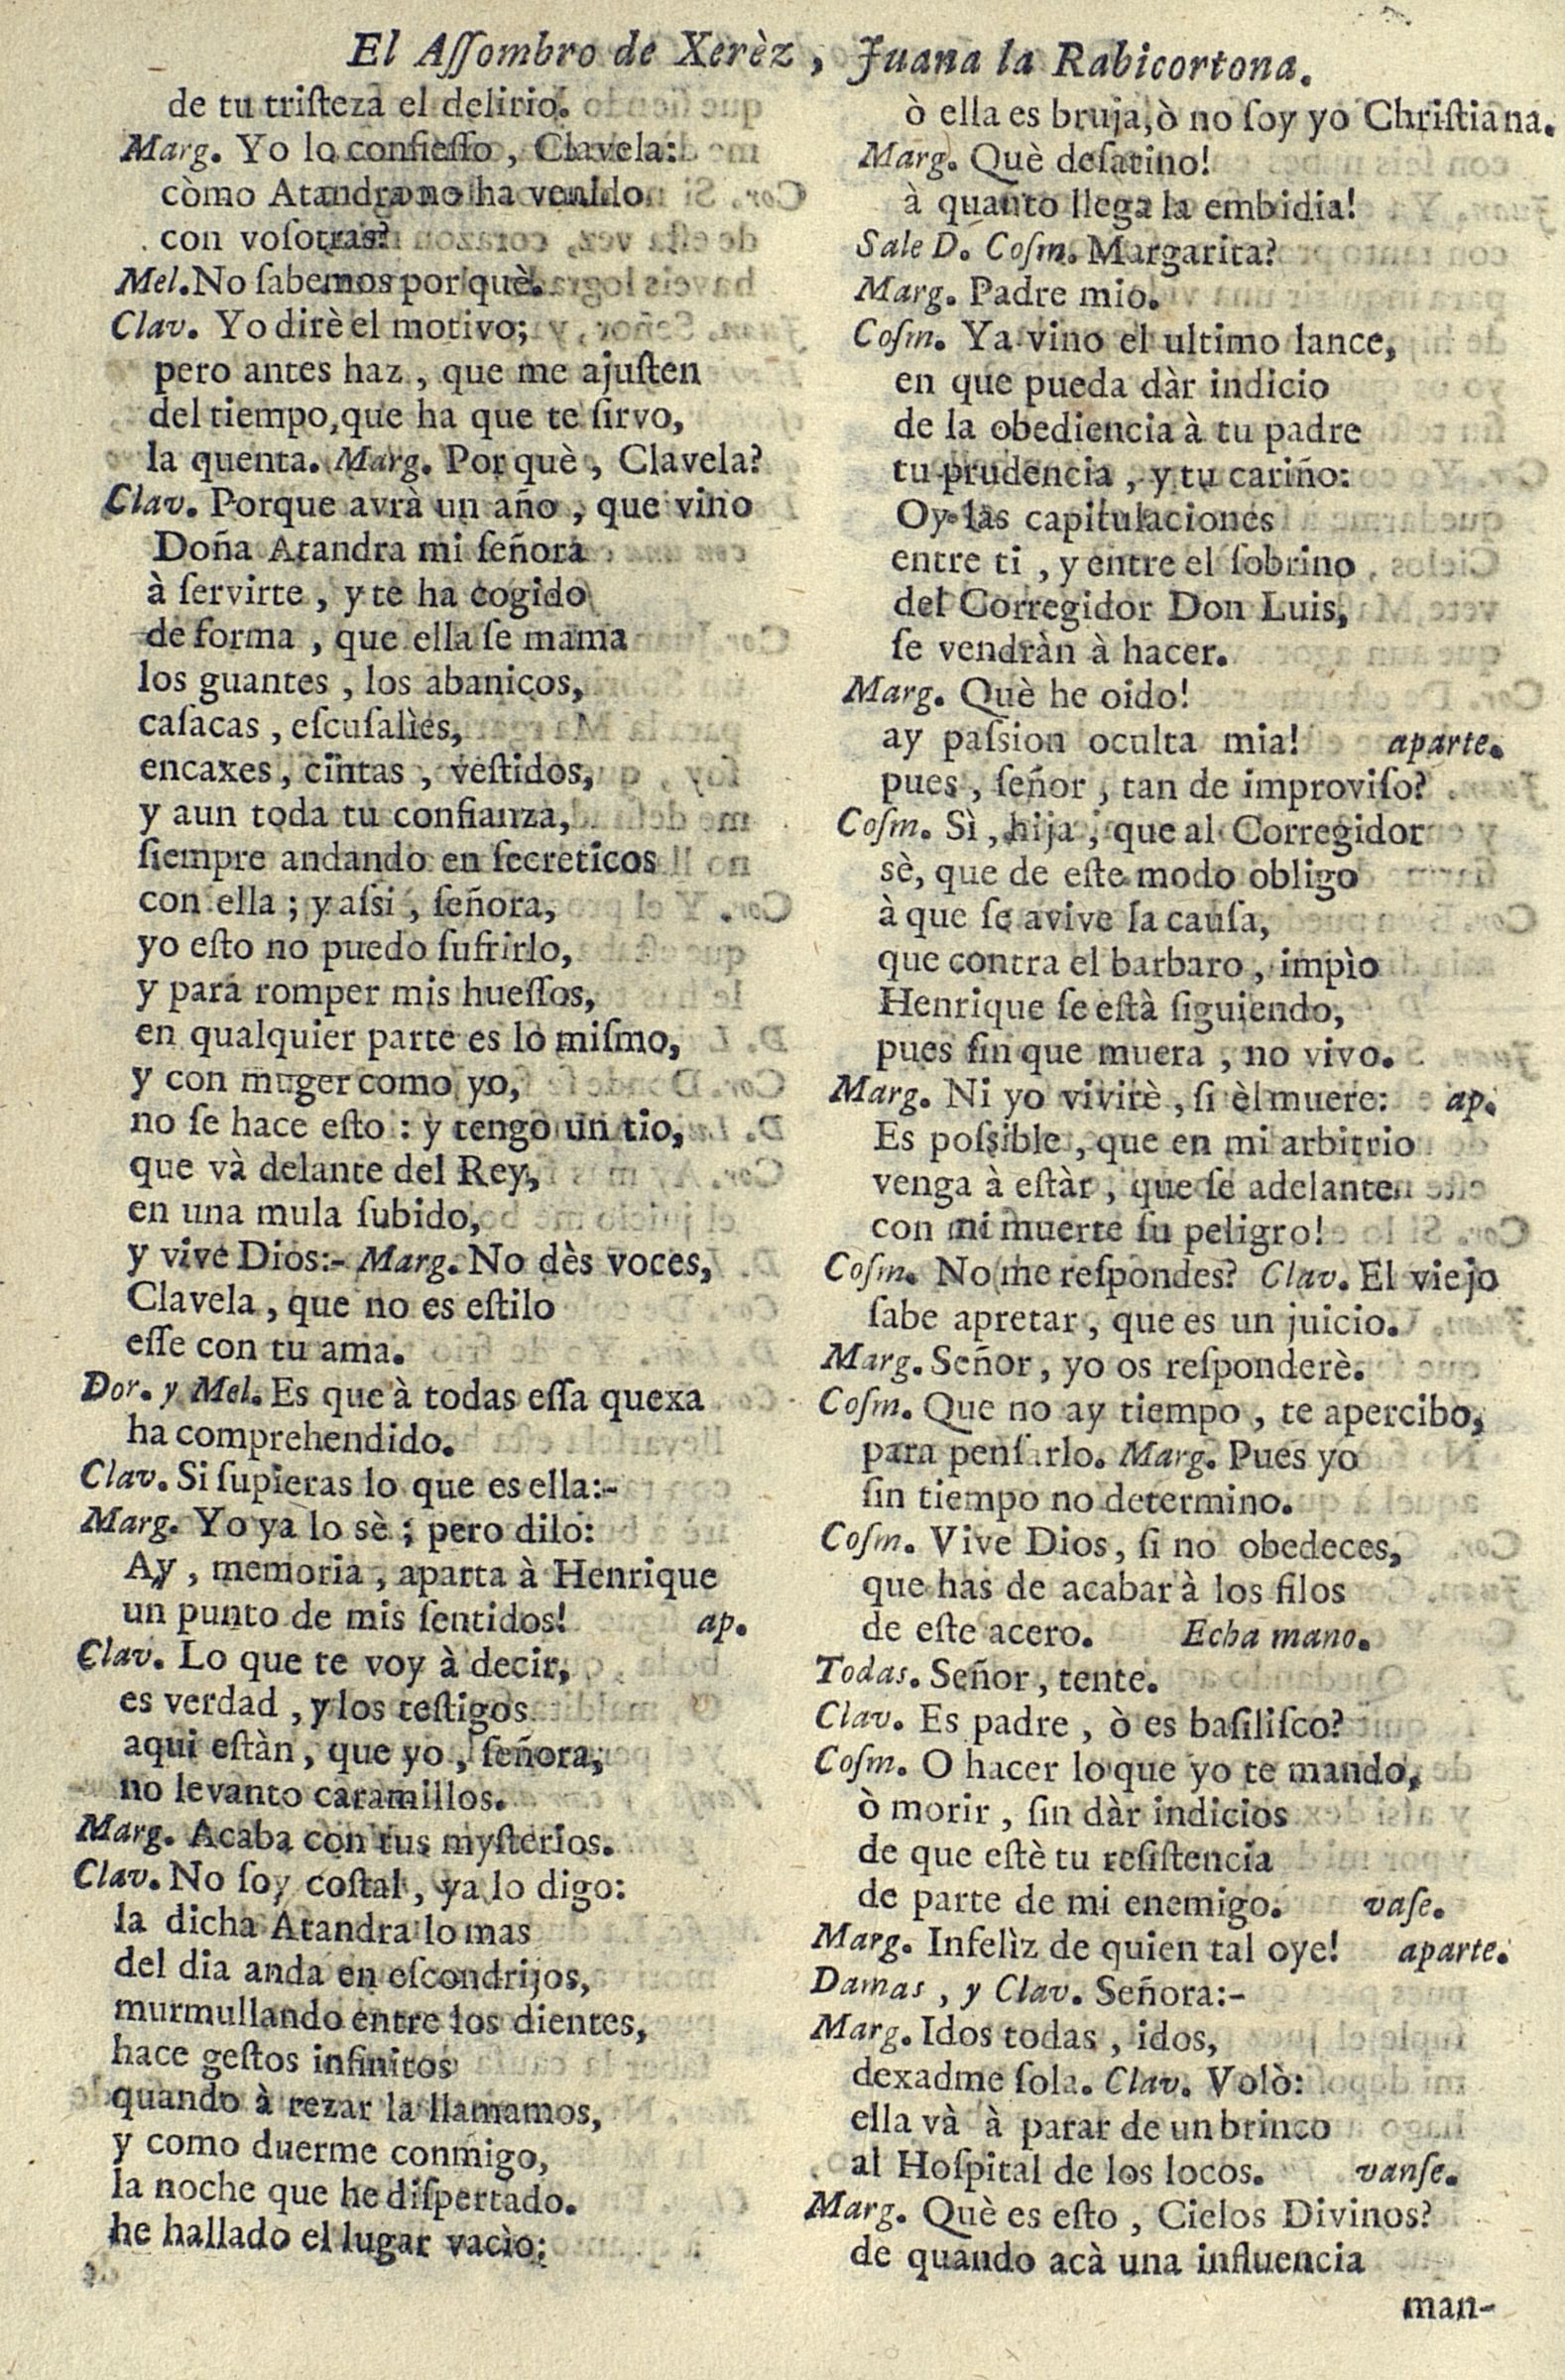 El Aſſombro de Xerèz, Juana la Rabicortona.
de tu triſteza el delirio.
Marg. Yo lo confieſſo, Clavela:
còmo Atandra no ha venido
con voſotras?
Mel. No ſabemos por què.
Clav. Yo dirè el motivo;
pero antes haz, que me ajuſten
del tiempo, que ha que te ſirvo,
la quenta. Marg. Por què, Clavela?
Clav. Porque avrà un año, que vino
Doña Atandra mi ſeñora
à ſervirte, y te ha cogido
de forma, que ella ſe mama
los guantes, los abanicos,
caſacas, eſcuſalìes,
encaxes, cintas, veſtidos,
y aun toda tu confianza,
ſiempre andando en ſecreticos
con ella; y aſsi, ſeñora,
yo eſto no puedo ſufrirlo,
y para romper mis hueſſos,
en qualquier parte es lo miſmo,
y con muger como yo,
no ſe hace eſto: y tengo un tio,
que và delante del Rey,
en una mula ſubido,
y vive Dios:- Marg. No dès voces,
Clavela, que no es eſtilo
eſſe con tu ama.
Dor. y Mel. Es que à todas eſſa quexa
ha comprehendido.
Clav. Si ſupieras lo que es ella:-
Marg. Yo ya lo sè; pero dilo:
Ay, memoria, aparta à Henrique
un punto de mis ſentidos! ap.
Clav. Lo que te voy à decir,
es verdad, y los teſtigos
aqui eſtàn, que yo, ſeñora,
no levanto caramillos.
Marg. Acaba con tus myſterios.
Clav. No ſoy coſtal, ya lo digo:
la dicha Atandra lo mas
del dia anda en eſcondrijos,
murmullando entre los dientes,
hace geſtos infinitos
quando à rezar la llamamos,
y como duerme conmigo,
la noche que he diſpertado.
he hallado el lugar vacìo:
ò ella es bruja, ò no ſoy yo Chriſtiana.
Marg. Què deſatino!
à quanto llega la embidia!
Sale D. Coſm. Margarita?
Marg. Padre mio.
Coſm. Ya vino el ultimo lance,
en que pueda dàr indicio
de la obediencia à tu padre
tu prudencia, y tu cariño:
Oy las capitulaciones
entre ti, y entre el ſobrino
del Corregidor Don Luis,
ſe vendràn à hacer.
Marg. Què he oido!
ay paſsion oculta mia! aparte.
pues, ſeñor, tan de improviſo?
Coſm. Sì, hija, que al Corregidor
sè, que de eſte modo obligo
à que ſe avive la cauſa,
que contra el barbaro, impìo
Henrique ſe eſtà ſiguiendo,
pues ſin que muera, no vivo.
Marg. Ni yo vivirè, ſi èl muere: ap.
Es poſsible, que en mi arbitrio
venga à eſtàr, que ſe adelante
con mi muerte ſu peligro!
Coſm. No me reſpondes? Clav. El viejo
ſabe apretar, que es un juicio.
Marg. Señor, yo os reſponderè.
Coſm. Que no ay tiempo, te apercibo,
para penſarlo. Marg. Pues yo
ſin tiempo no determino.
Coſm. Vive Dios, ſi no obedeces,
que has de acabar à los filos
de eſte acero. Echa mano.
Todas. Señor, tente.
Clav. Es padre, ò es baſiliſco?
Coſm. O hacer lo que yo te mando,
ò morir, ſin dàr indicios
de que eſtè tu reſiſtencia
de parte de mi enemigo. vaſe.
Marg. Infelìz de quien tal oye! aparte.
Damas, y Clav. Señora:-
Marg. Idos todas, idos,
dexadme ſola. Clav. Volò:
ella và à parar de un brinco
al Hoſpital de los locos. vanſe.
Marg. Què es eſto, Cielos Divinos?
de quando acà una influencia
man-